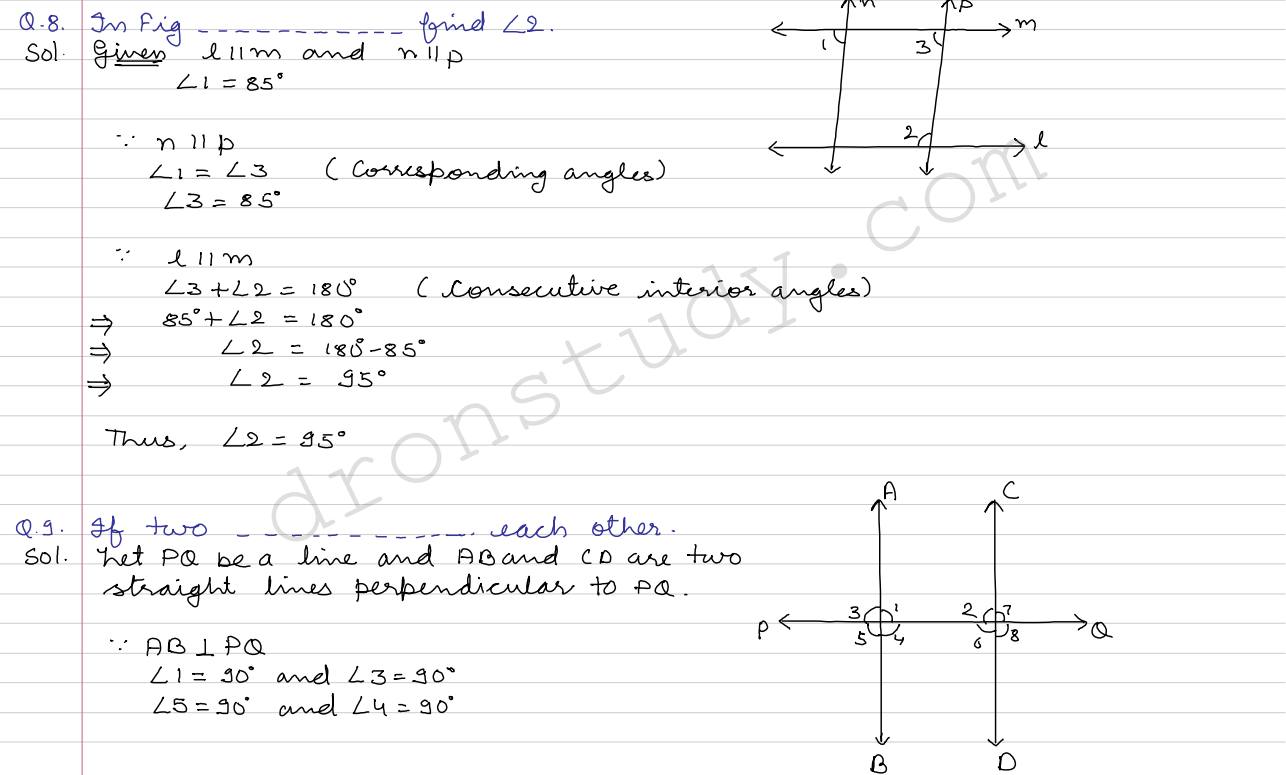 Q.8. In Fig ___________ find ∠2.
Sol. Given l || m and n || p
∠1 = 85°
∵ n || p
∠1 = ∠3 (Corresponding angles)
∠3 = 85°
∵ l || m
∠3 + ∠2 = 180° (Consecutive interior angles)
⇒ 85° + ∠2 = 180°
⇒ ∠2 = 180° - 85°
⇒ ∠2 = 95°
Thus, ∠2 = 95°
n p
m
1 3
2
l
dronstudy.com
Q.9. If two ___________ each other.
Sol. Let PQ be a line and AB and CD are two
straight lines perpendicular to PQ.
∵ AB ⊥ PQ
∠1 = 90° and ∠3 = 90°
∠5 = 90° and ∠4 = 90°
A C
3 1 2 7
P Q
5 4 6 8
B D